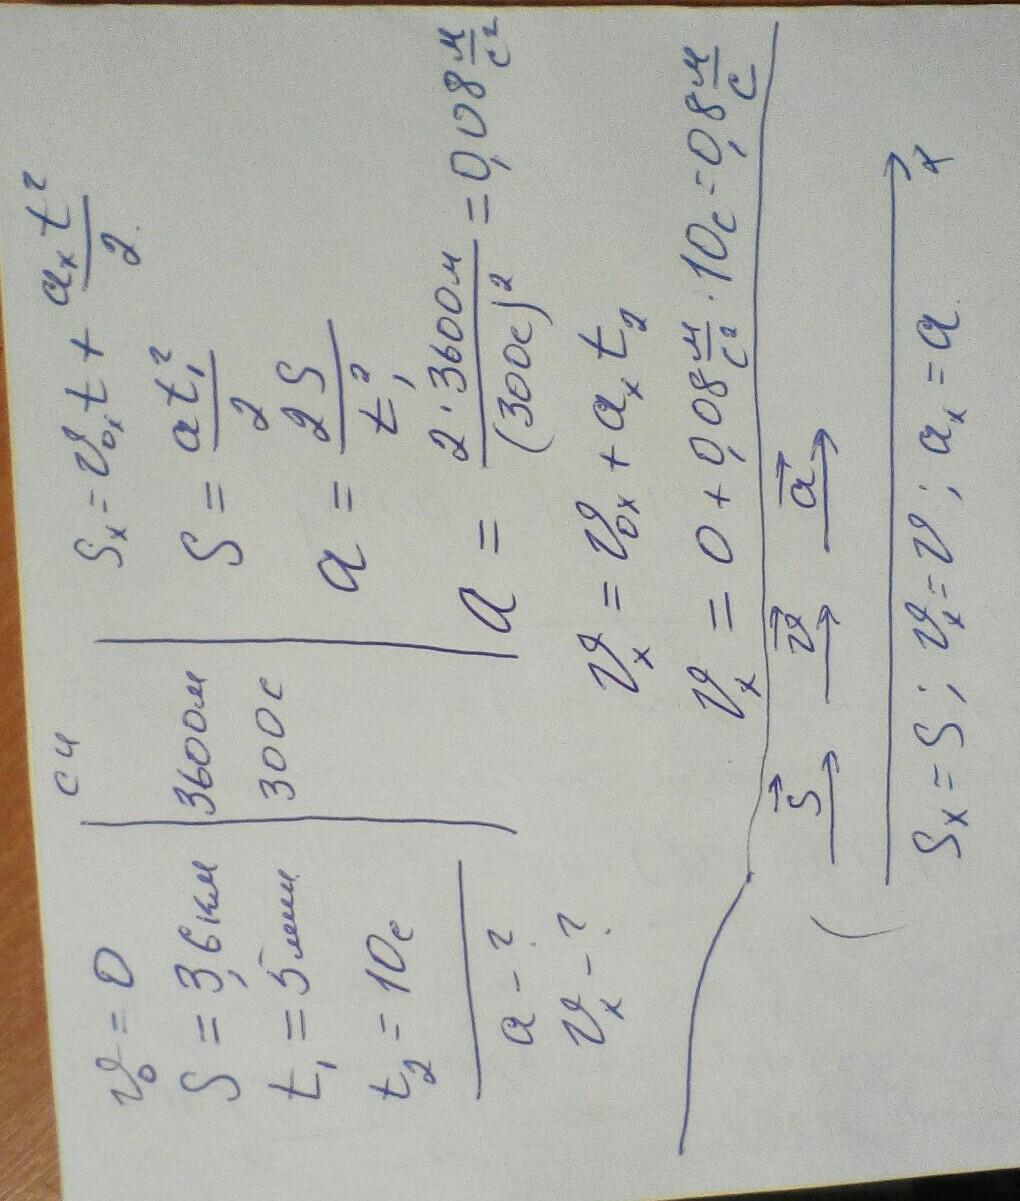 СИ
v₀ = 0
S = 3,6 км | 3600 м
t₁ = 5 мин | 300 с
t₂ = 10 с
a - ?
vₓ - ?
Sₓ = v₀ₓt + aₓt²/2
S = at₁²/2
a = 2S/t₁²
a = 2·3600м/(300с)² = 0,08 м/с²
vₓ = v₀ₓ + aₓt₂
vₓ = 0 + 0,08 м/с² · 10с = 0,8 м/с
S⃗ v⃗ a⃗
x
Sₓ = S; vₓ = v; aₓ = a.